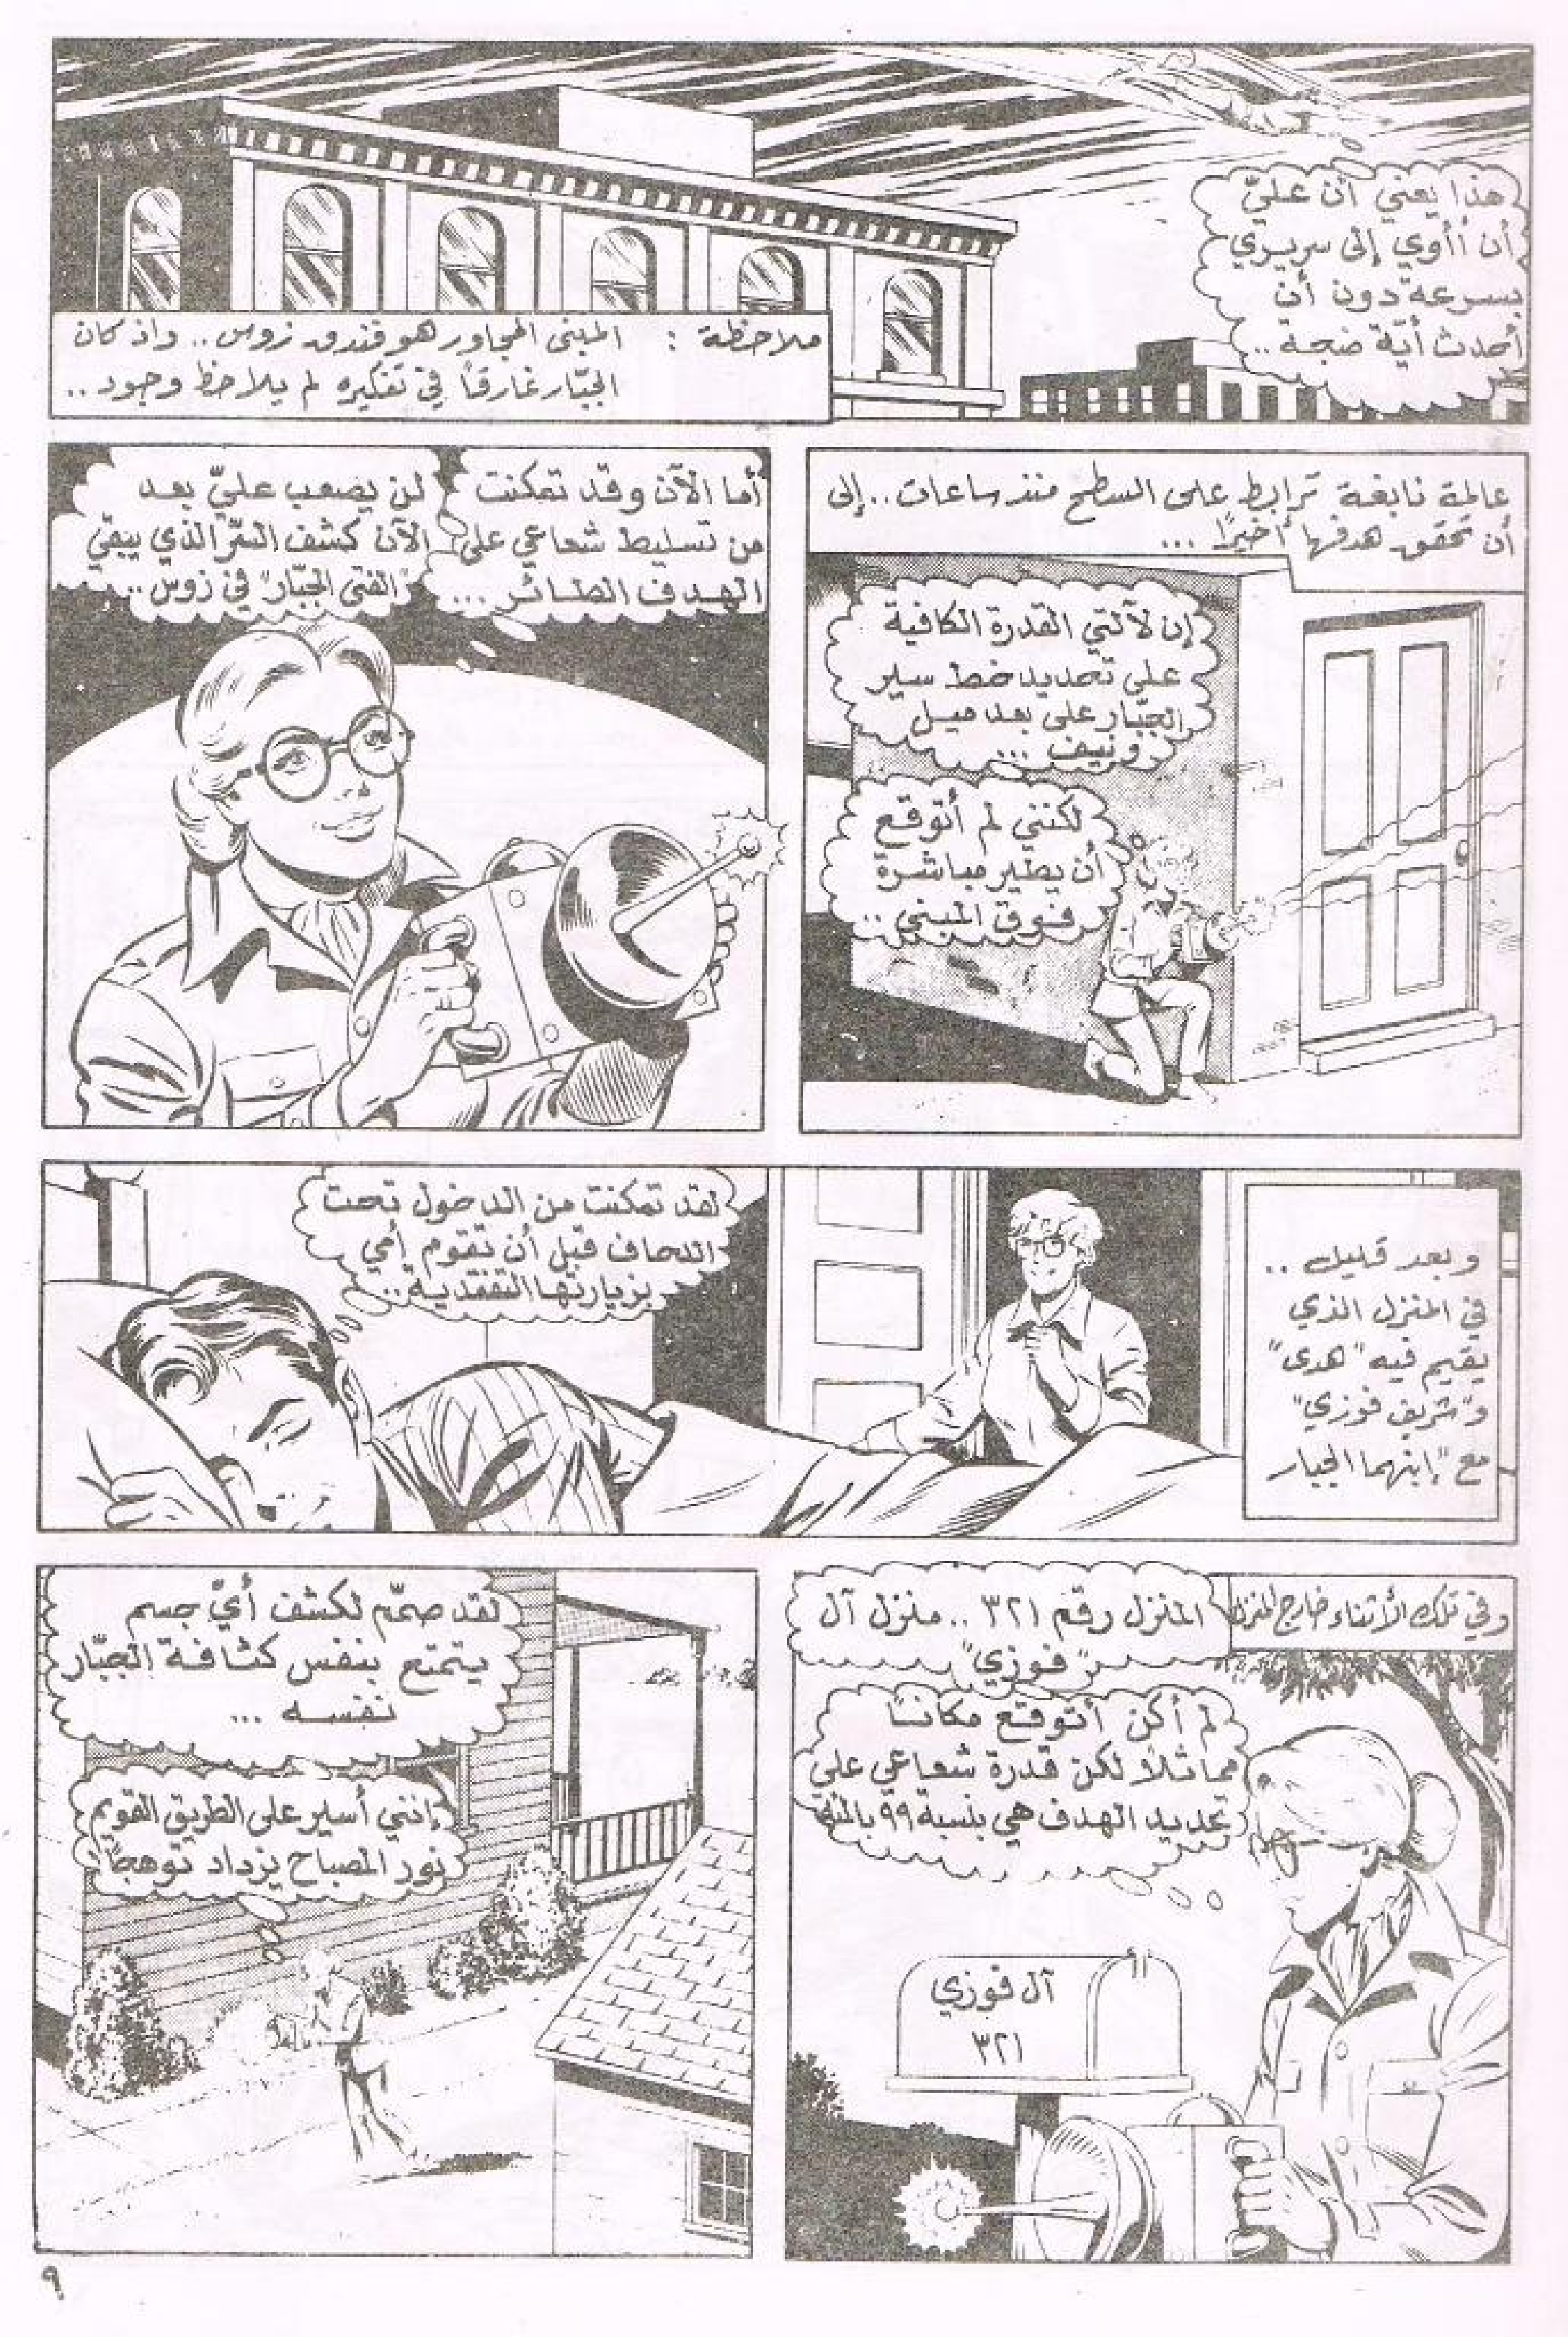 هذا يعني أن عليّ
أن أأوي إلى سريري
بسرعة دون أن
أحدث أيّة ضجة ..
ملاحظة : المبنى المجاور هو فندق زوس .. واذ كان
الجبّار غارقًا في تفكيره لم يلاحظ وجود ..
عالمة نابغة ترابط على السطح منذ ساعات .. إلى
أن تحقق هدفها أخيرًا ...
إن لآلتي القدرة الكافية
على تحديد خط سير
الجبّار على بعد ميل
ونيف ...
لكنني لم أتوقع
أن يطير مباشرة
فوق المبنى ..
أما الآن وقد تمكنت
من تسليط شعاعي على
الهدف الطائر ...
لن يصعب عليّ بعد
الآن كشف السّر الذي يبقي
"الفتى الجبّار" في زوس ..
وبعد قليل ..
في المنزل الذي
يقيم فيه "هدى"
و"شريف فوزي"
مع "إبنهما الجبار
لقد تمكنت من الدخول تحت
اللحاف قبل أن تقوم أمي
بزيارتها التفقدية ..
وفي تلك الأثناء خارج المنزل
المنزل رقم ٣٢١ .. منزل آل
"فوزي"
لم أكن أتوقع مكانًا
مماثلًا لكن قدرة شعاعي على
تحديد الهدف هي بنسبة ٩٩ بالمئة
آل فوزي
٣٢١
لقد صمّم لكشف أيّ جسم
يتمتع بنفس كثافة الجبّار
نفسه ...
إنني أسير على الطريق القويم
نور المصباح يزداد توهجًا !
٩